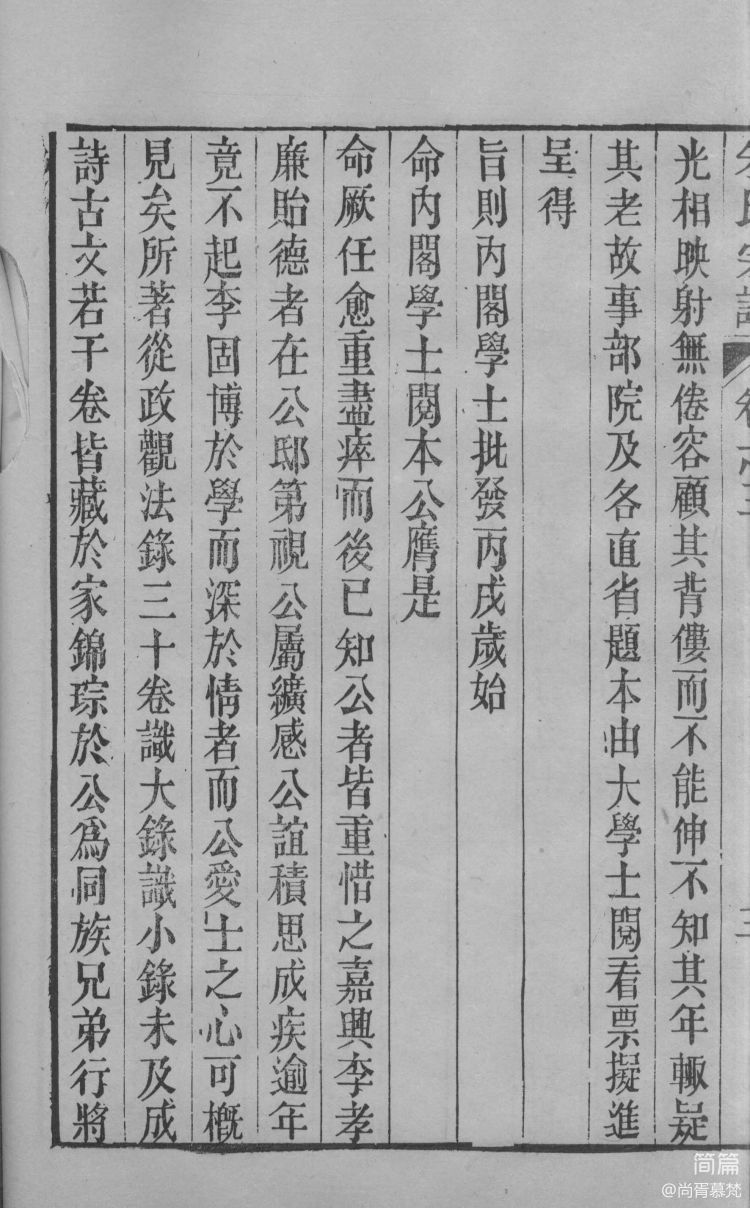 朱氏宗譜
光相映射無倦容顧其背僂而不能伸不知其年輙疑
其老故事部院及各直省題本由大學士閱看票擬進
呈得
旨則內閣學士批發丙戌歲始
命內閣學士閱本公膺是
命厥任愈重盡瘁而後已知公者皆重惜之嘉興李孝
廉貽德者在公邸第視公屬纊感公誼積思成疾逾年
竟不起李固博於學而深於情者而公愛士之心可概
見矣所著從政觀法錄三十卷識大錄識小錄未及成
詩古文若干卷皆藏於家錦琮於公爲同族兄弟行將
简篇
@尚胥慕梵